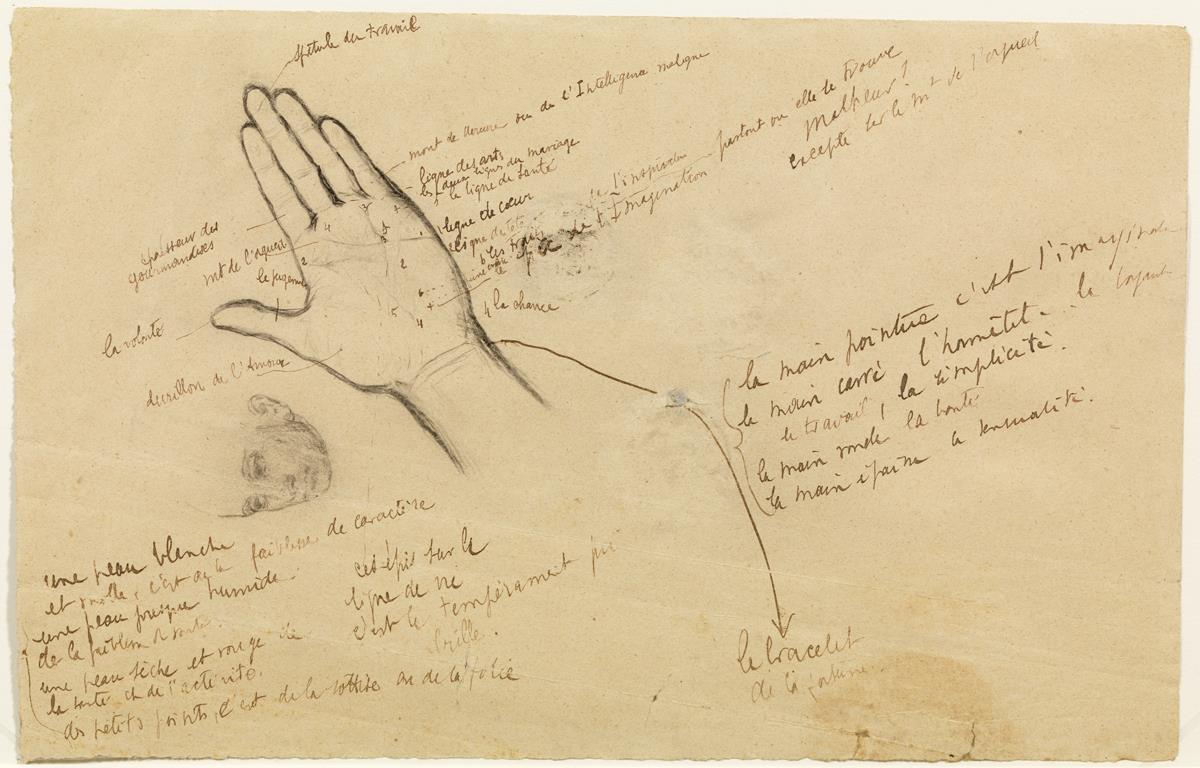 spatule du travail
mont de
ou de l'Intelligence maligne
ligne des arts
du mariage
la ligne de santé
ligne de cœur
ligne de tete
les traits
une croix
de l'inspiration
de l'Imagination
partout ou elle se trouve
Malheur!
excepte sur le mt de l'orgueil
épaisseur des
gourmandises
mt de l'orgueil
la volonté
durillon de l'Amour
la chance
1
2
3
4
5
6
la main pointue c'est l'imagination
la main carré l'honnêteté
le travail, la simplicité.
la main ronde la bonté
la main épaisse la sensualité.
une peau blanche
et molle, c'est de la faiblesse de caractère
une peau presque humide
de la
une peau sèche et rouge
la santé et de l'activité.
des petits points, c'est de la sottise ou de la folie
ces épis sur la
ligne de vie
c'est le tempérament
brille.
le bracelet
de la fortune